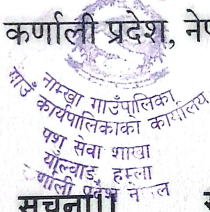 कर्णाली प्रदेश, ने
नाम्खा गाउँपालिका
गाउँ कार्यपालिकाको कार्यालय
पशु सेवा शाखा
याल्वाङ, हुम्ला
कर्णाली प्रदेश नेपाल
सूचना!!